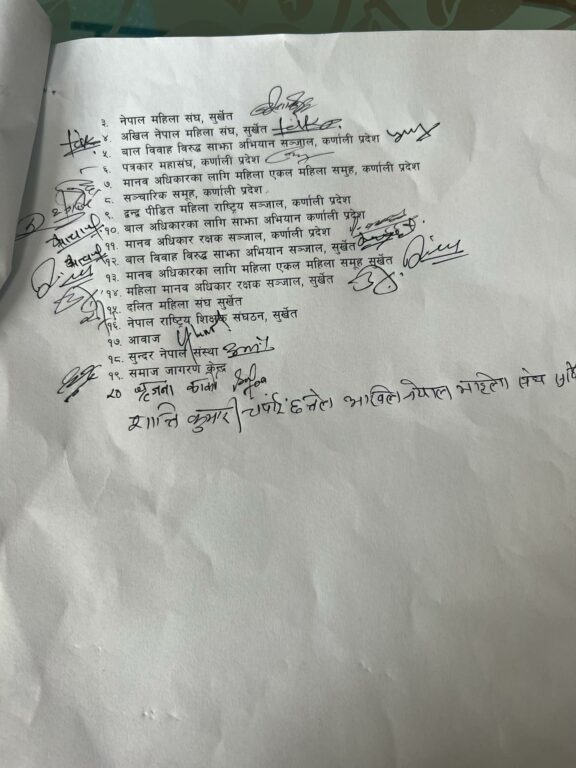 ३. नेपाल महिला संघ, सुर्खेत
४. अखिल नेपाल महिला संघ, सुर्खेत
५. बाल विवाह विरुद्ध साझा अभियान सञ्जाल, कर्णाली प्रदेश
६. पत्रकार महासंघ, कर्णाली प्रदेश
७. मानव अधिकारका लागि महिला एकल महिला समुह, कर्णाली प्रदेश
८. सञ्चारिक समूह, कर्णाली प्रदेश
९. द्वन्द पीडित महिला राष्ट्रिय सञ्जाल, कर्णाली प्रदेश
१०. बाल अधिकारका लागि साझा अभियान कर्णाली प्रदेश
११. मानव अधिकार रक्षक सञ्जाल, कर्णाली प्रदेश
१२. बाल विवाह विरुद्ध साझा अभियान सञ्जाल, सुर्खेत
१३. मानव अधिकारका लागि महिला एकल महिला समुह सुर्खेत
१४. महिला मानव अधिकार रक्षक सञ्जाल, सुर्खेत
१५. दलित महिला संघ सुर्खेत
१६. नेपाल राष्ट्रिय शिक्षक संघठन, सुर्खेत
१७. आवाज
१८. सुन्दर नेपाल संस्था
१९. समाज जागरण केन्द्र
२०
शान्ति कुमारी